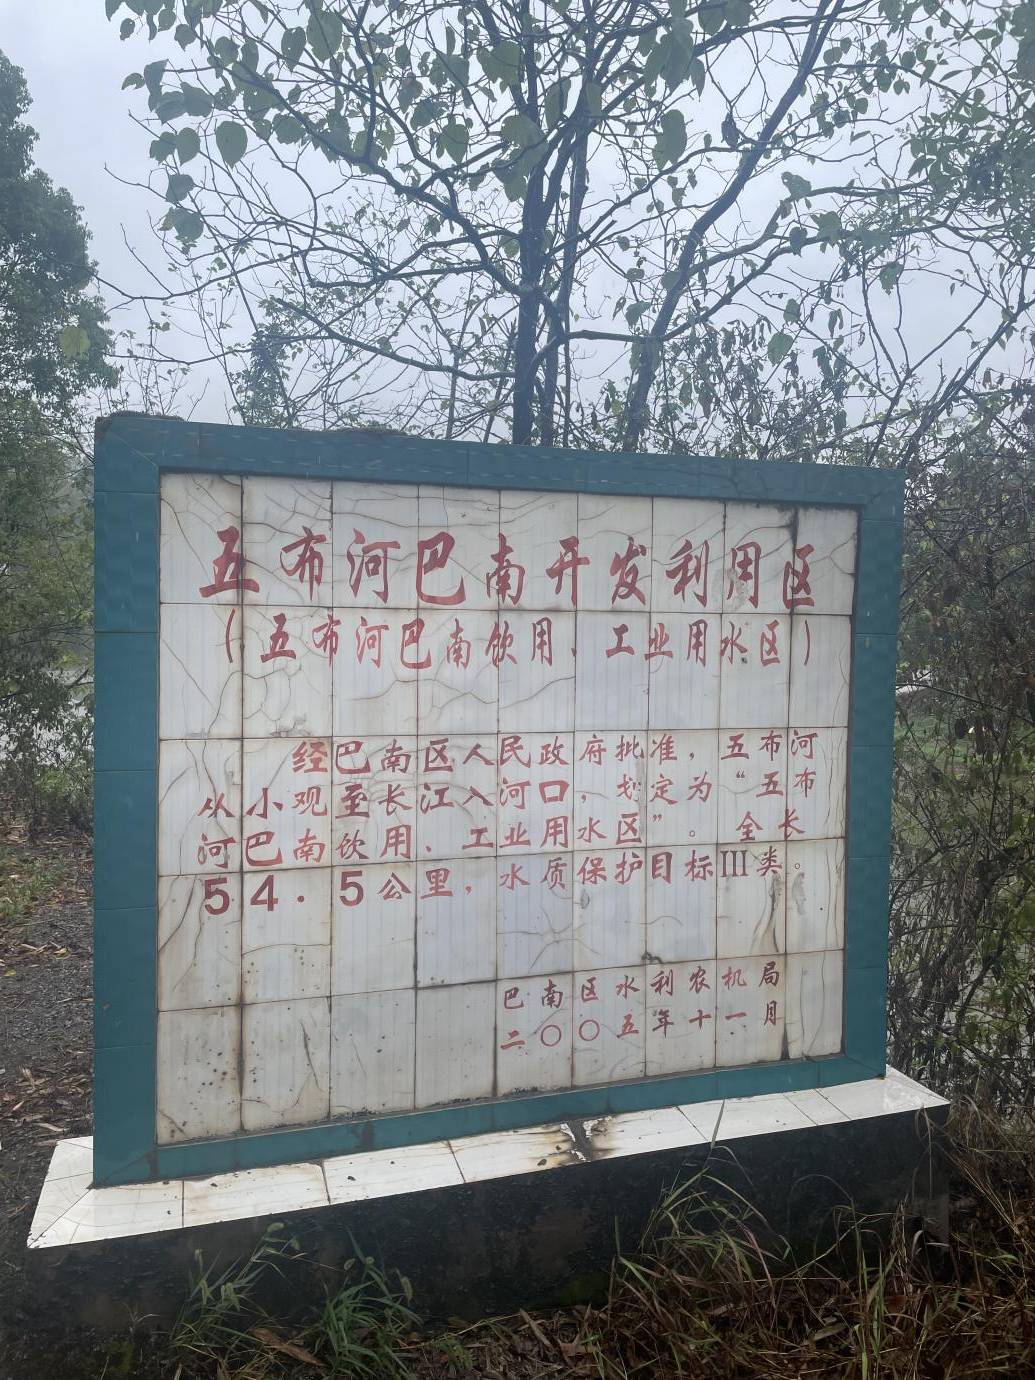 五布河巴南开发利用区
（五布河巴南饮用、工业用水区）
经巴南区人民政府批准，五布河
从小观至长江入河口，划定为“五布
河巴南饮用、工业用水区”。全长
54.5公里，水质保护目标III类。
巴南区水利农机局
二〇〇五年十一月